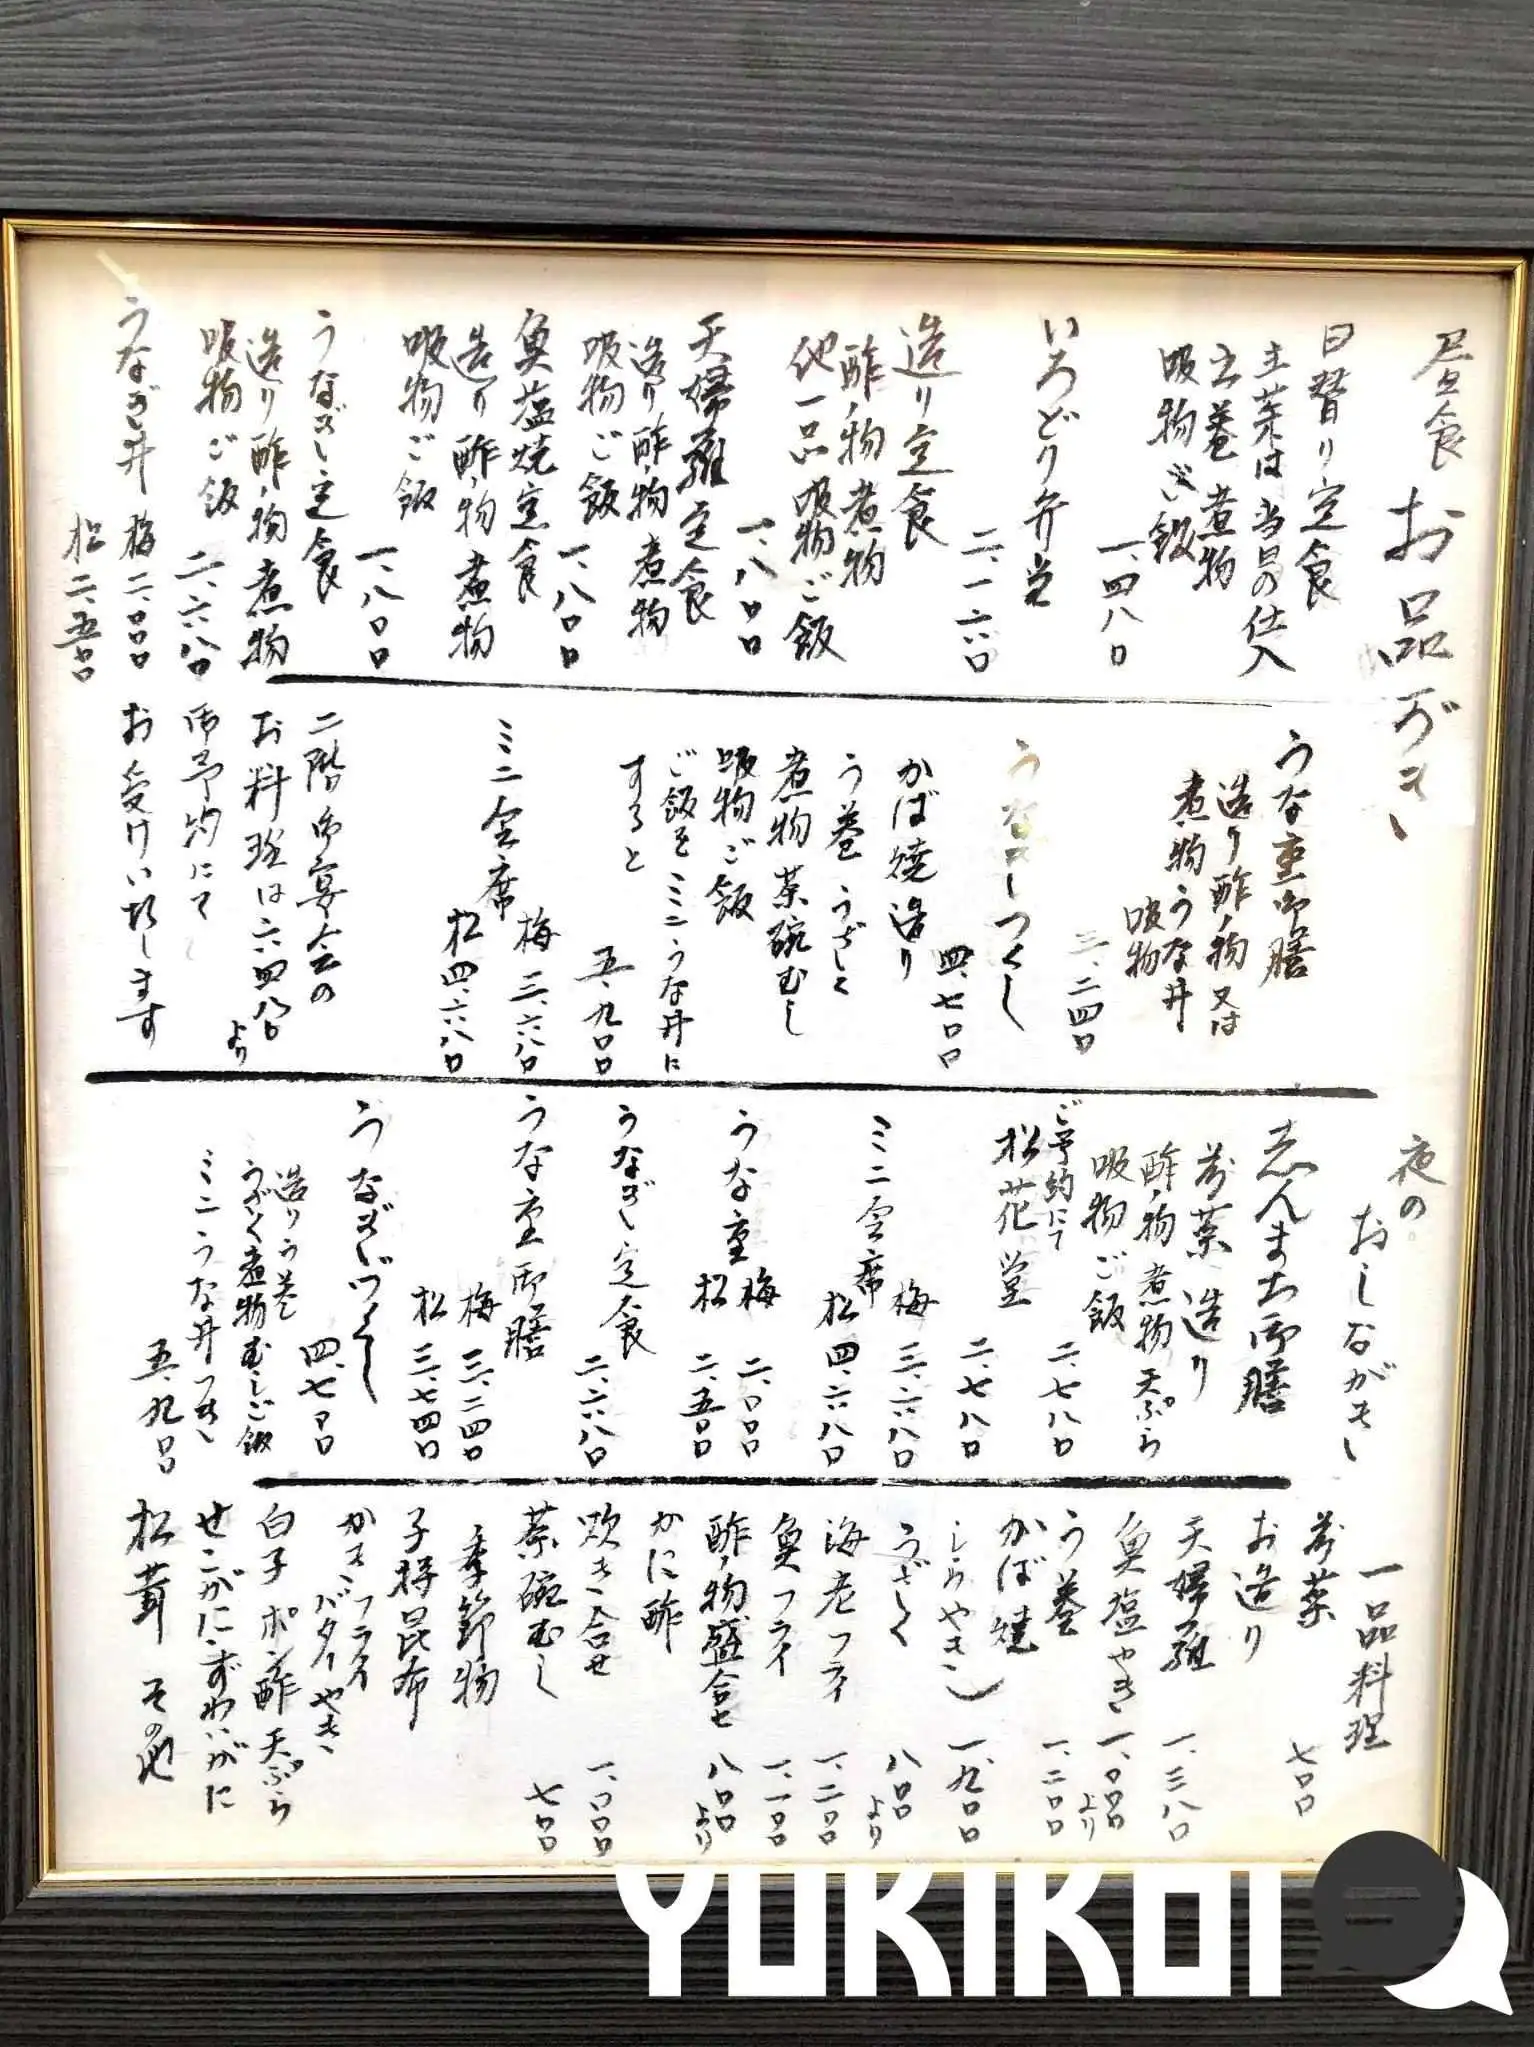 昼食
お品がき
日替り定食
主菜は当日の仕入
う巻 煮物
吸物 ご飯
一、四八〇
いろどり弁当
二、一六〇
造り定食
酢ノ物 煮物
他一品 吸物 ご飯
一、八〇〇
天婦羅定食
造り 酢ノ物 煮物
吸物 ご飯
一、八〇〇
魚塩焼定食
造り 酢ノ物 煮物
吸物 ご飯
一、八〇〇
うなぎ定食
造り 酢ノ物 煮物
吸物 ご飯
二、六八〇
うなぎ丼 梅 二、〇〇〇
松 二、五〇〇
うな重御膳
造り 酢ノ物 又は
煮物 うな丼
吸物
三、二四〇
うなぎづくし
四、七〇〇
かば焼 造り
う巻 うざく
煮物 茶碗むし
吸物 ご飯
ご飯をミニうな丼に
すると
五、九〇〇
ミニ会席
梅 三、六八〇
松 四、六八〇
二階御宴会の
お料理は六、四八〇より
御予約にて
お受けい致します
夜の
おしながき
志んまち御膳
前菜 造り
酢ノ物 煮物 天ぷら
吸物 ご飯
二、七八〇
ご予約にて
松花堂
二、七八〇
ミニ会席
梅 三、六八〇
松 四、六八〇
うな重
梅 二、〇〇〇
松 二、五〇〇
うなぎ定食
二、六八〇
うな重御膳
梅 三、二四〇
松 三、七四〇
うなぎづくし
四、七〇〇
造り う巻
うざく 煮物 むし ご飯
ミニうな丼つき
五、九〇〇
一品料理
前菜 七〇〇
お造り
天婦羅 一、三八〇
魚塩やき 一、〇〇〇より
う巻 一、二〇〇
かば焼
(しらやき) 一、九〇〇
うざく 八〇〇より
海老フライ 一、二〇〇
魚フライ 一、一〇〇
酢ノ物盛合せ 八〇〇より
かに酢
炊き合せ 一、〇〇〇
茶碗むし 七〇〇
季節物
子持昆布
かき フライ
バターやき
白子 ポン酢 天ぷら
せこがに ずわいがに
松茸 その他
YUKIKOI